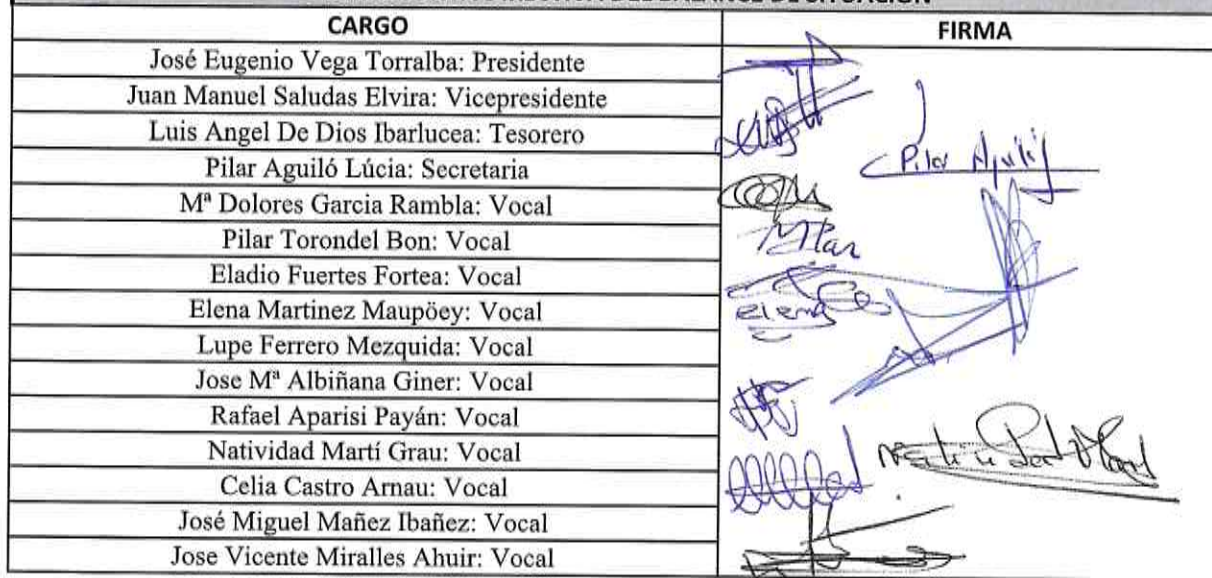 BALANCE DE SITUACIÓN
CARGO FIRMA
José Eugenio Vega Torralba: Presidente
Juan Manuel Saludas Elvira: Vicepresidente
Luis Angel De Dios Ibarlucea: Tesorero
Pilar Aguiló Lúcia: Secretaria
Pilar Aguiló
Mª Dolores Garcia Rambla: Vocal
Pilar Torondel Bon: Vocal
MPar
Eladio Fuertes Fortea: Vocal
Elena Martinez Maupöey: Vocal
elena
Lupe Ferrero Mezquida: Vocal
Jose Mª Albiñana Giner: Vocal
Rafael Aparisi Payán: Vocal
Natividad Martí Grau: Vocal
Celia Castro Arnau: Vocal
José Miguel Mañez Ibañez: Vocal
Jose Vicente Miralles Ahuir: Vocal